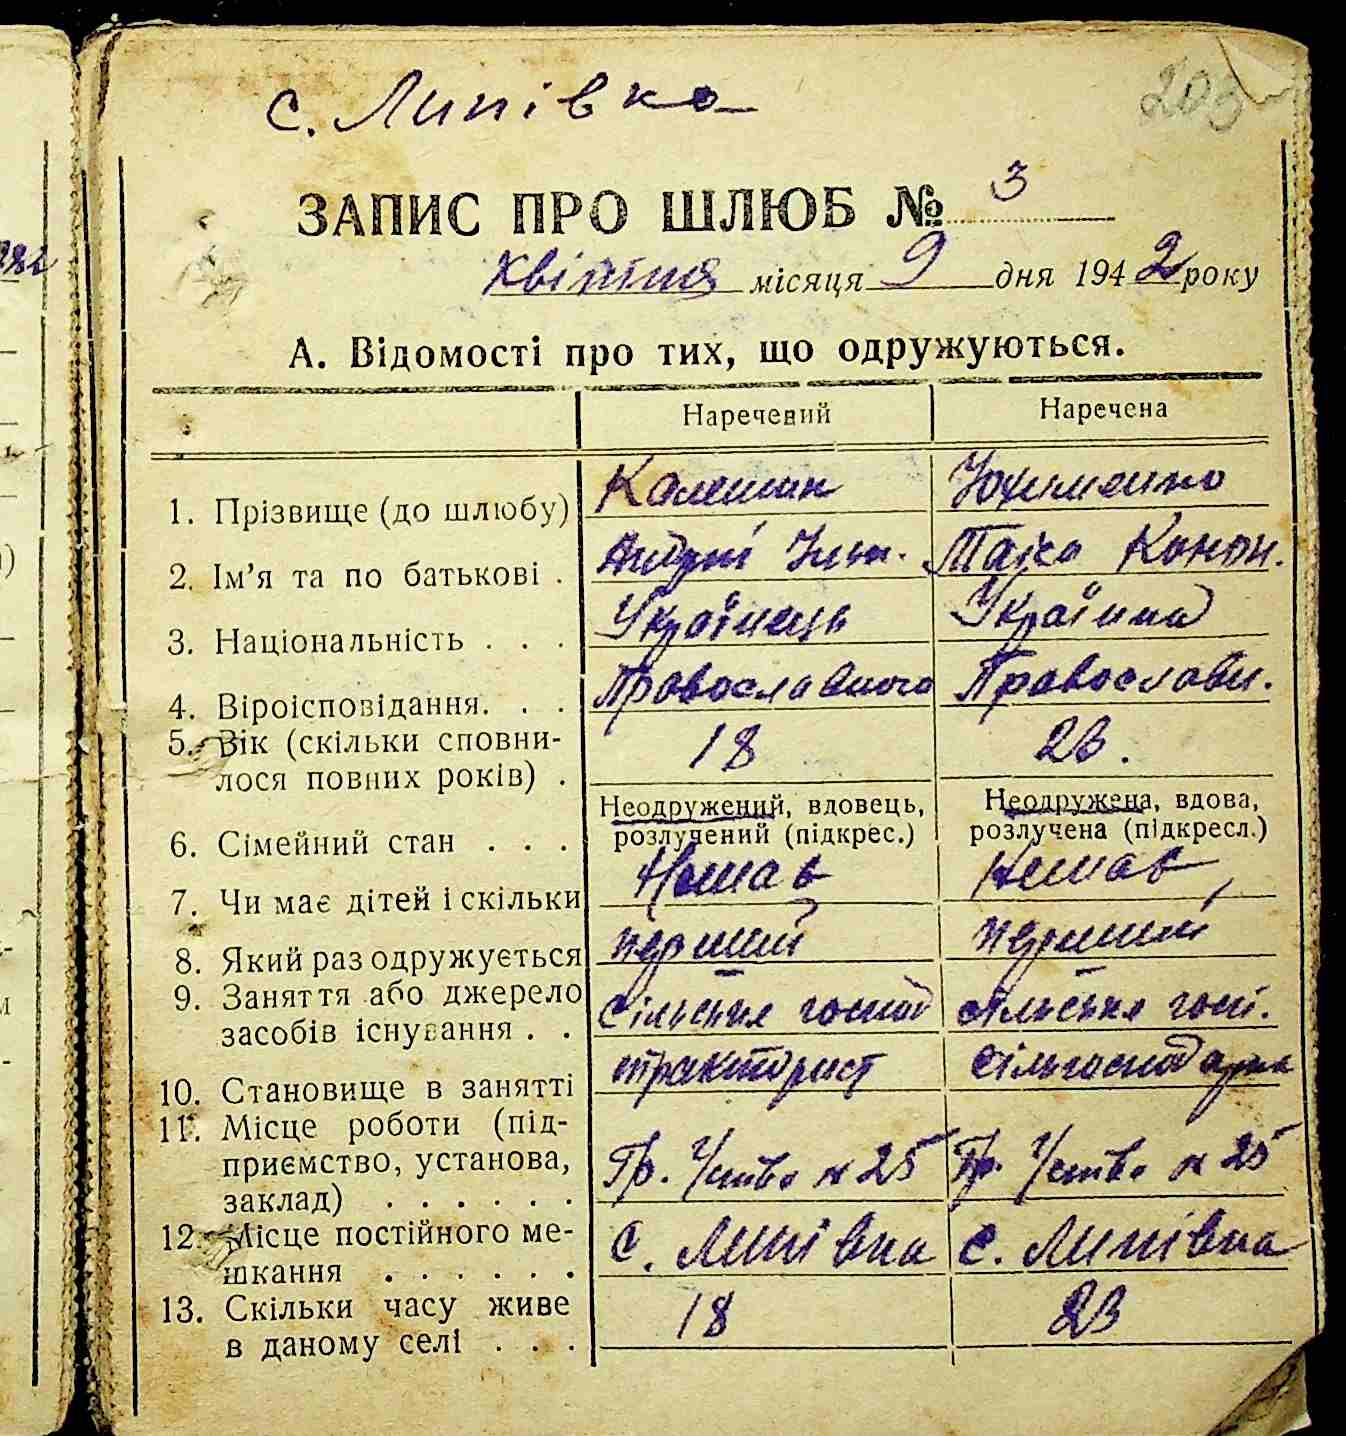 с. Липівка
203
ЗАПИС ПРО ШЛЮБ № 3
квітня місяця 9 дня 1942 року
А. Відомості про тих, що одружуються.
Наречений Наречена
1. Прізвище (до шлюбу) Калешан Юхименко
2. Ім’я та по батькові . Андрій Таїса Конон.
3. Національність . . . Українець Україна
4. Віроісповідання. . . Православного Православн.
5. Вік (скільки сповни-
лося повних років) . 18 23.
Неодружений, вдовець, Неодружена, вдова,
6. Сімейний стан . . . розлучений (підкрес.) розлучена (підкресл.)
7. Чи має дітей і скільки Немає Немає
8. Який раз одружується перший перший
9. Заняття або джерело
засобів існування . . сільське господ сільське госп.
10. Становище в занятті тракторист
11. Місце роботи (під-
приємство, установа,
заклад) . . . . . . Гр. № 25 Гр. № 25
12. Місце постійного ме-
шкання . . . . . . с. Липівка с. Липівка
13. Скільки часу живе
в даному селі . . . 18 23